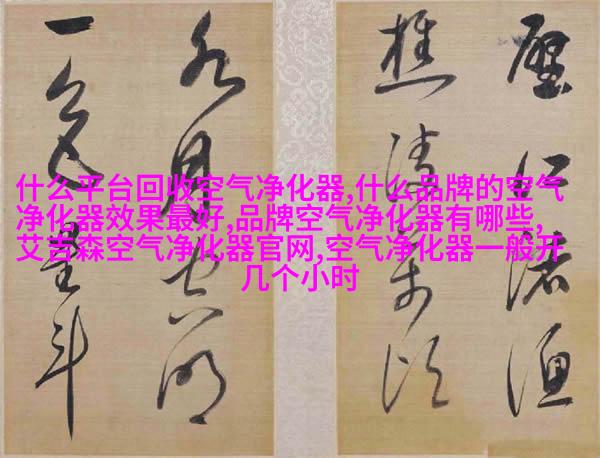 水月空明
一色星斗
什么平台回收空气净化器,什么品牌的空气
净化器效果最好,品牌空气净化器有哪些,
艾吉森空气净化器官网,空气净化器一般开
几个小时